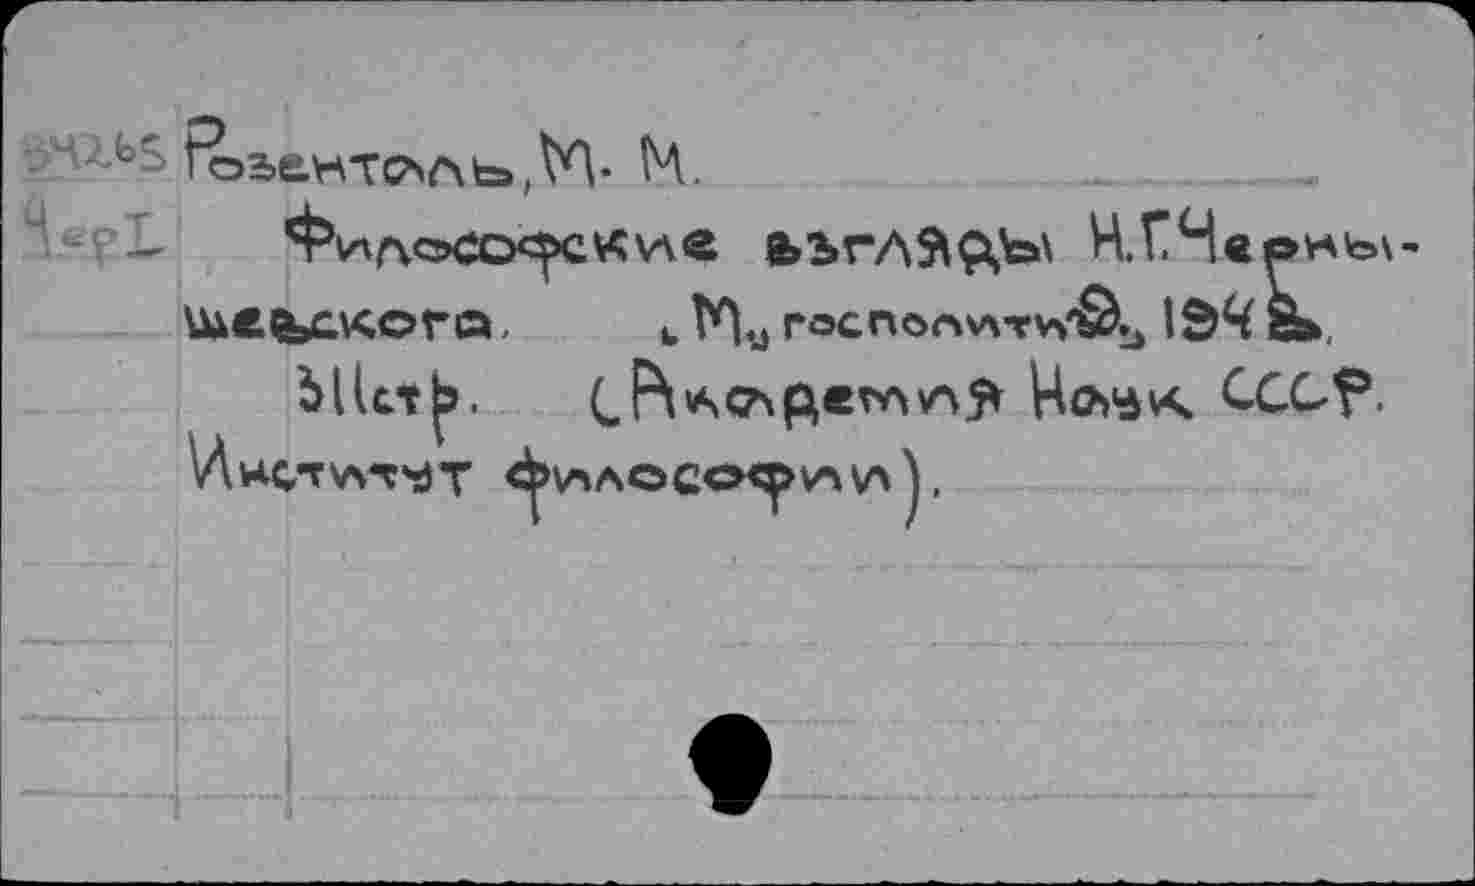 Розенталь, М. М.
ЧерI Философские взгляды Н.Г.Черны-
шевского. М., госполитиз., 1948.
311стр. (Академия Наук СССР.
Институт философии).